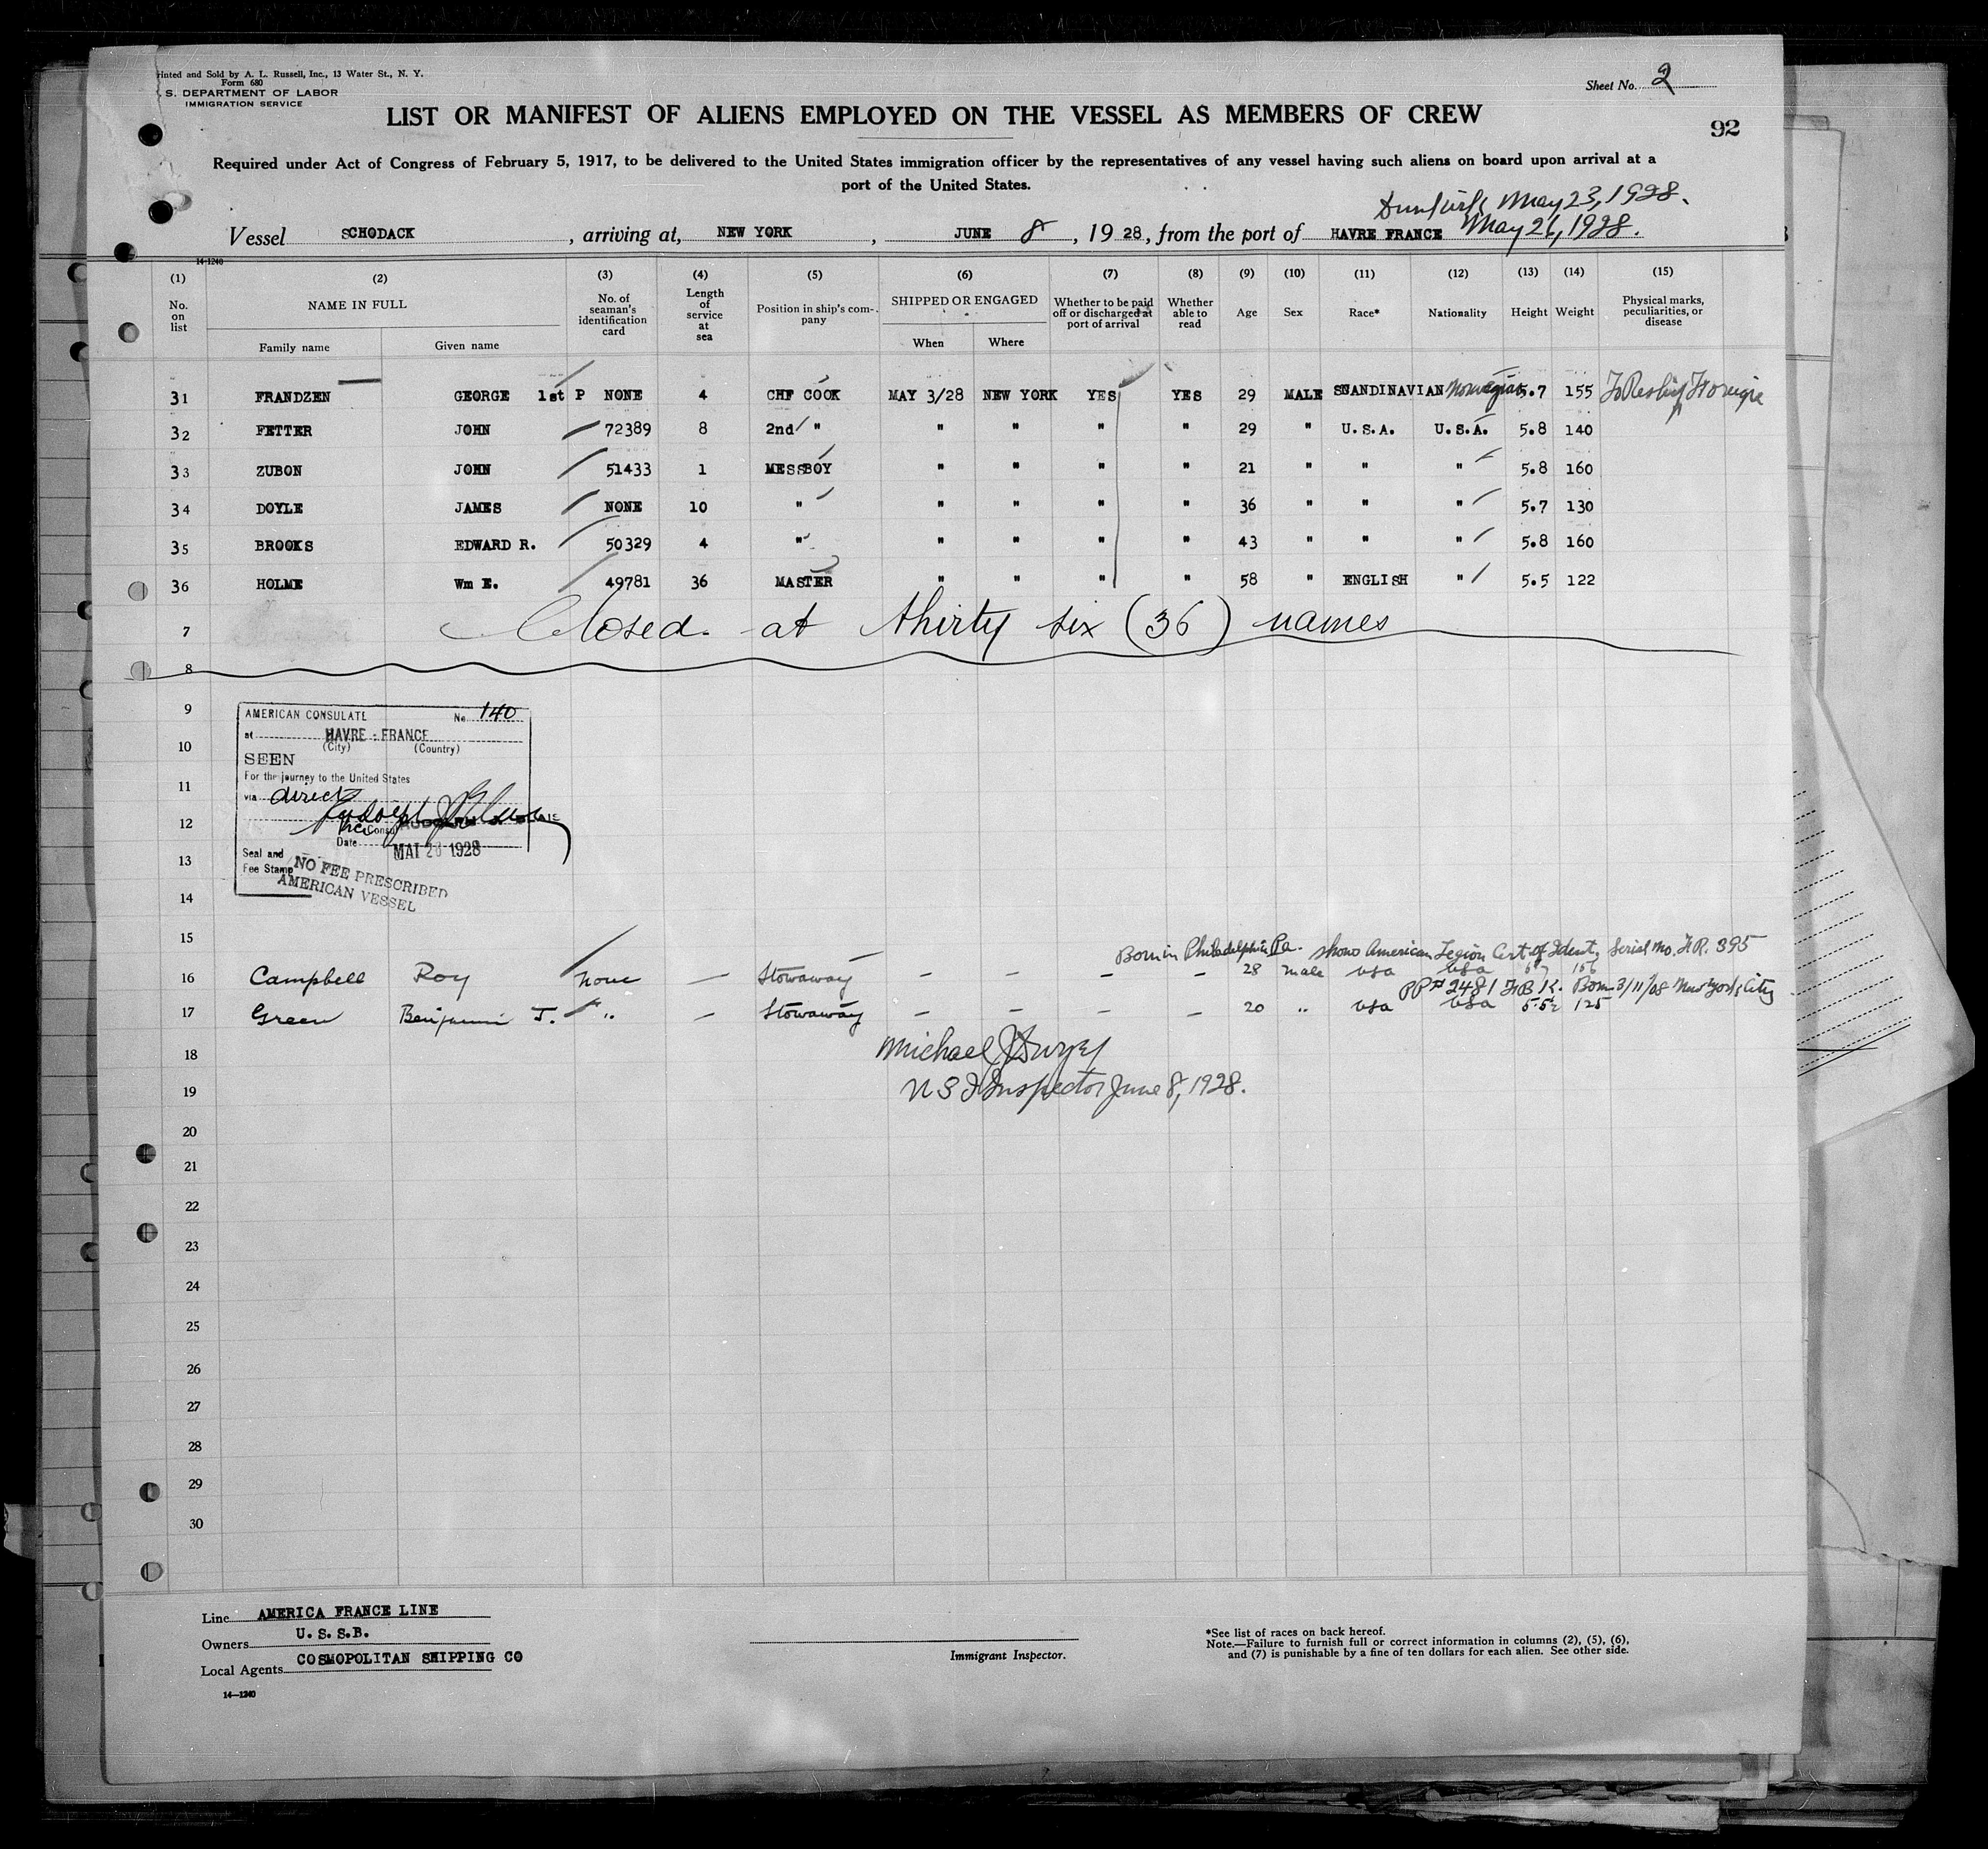 rinted and Sold by A. L. Russell, Inc., 13 Water St., N. Y.
Form 680
S. DEPARTMENT OF LABOR
IMMIGRATION SERVICE
Sheet No. 2
LIST OR MANIFEST OF ALIENS EMPLOYED ON THE VESSEL AS MEMBERS OF CREW
92
Required under Act of Congress of February 5, 1917, to be delivered to the United States immigration officer by the representatives of any vessel having such aliens on board upon arrival at a
port of the United States.
Dunkirk May 23, 1928.
Vessel SCHODACK, arriving at, NEW YORK, JUNE 8, 1928, from the port of HAVRE FRANCE May 26, 1928.
14-1240
(1) (2) (3) (4) (5) (6) (7) (8) (9) (10) (11) (12) (13) (14) (15)
No. on list NAME IN FULL Family name Given name No. of seaman's identification card Length of service at sea Position in ship's company SHIPPED OR ENGAGED When Where Whether to be paid off or discharged at port of arrival Whether able to read Age Sex Race* Nationality Height Weight Physical marks, peculiarities, or disease
31 FRANDZEN GEORGE 1st P NONE 4 CHF COOK MAY 3/28 NEW YORK YES YES 29 MALE SCANDINAVIAN Norwegian 5.7 155 To Reship Foreign
32 FETTER JOHN 72389 8 2nd " " " " " 29 " U.S.A. U.S.A. 5.8 140
33 ZUBON JOHN 51433 1 MESSBOY " " " " 21 " " " 5.8 160
34 DOYLE JAMES NONE 10 " " " " " 36 " " " 5.7 130
35 BROOKS EDWARD R. 50329 4 " " " " " 43 " " " 5.8 160
36 HOLME Wm E. 49781 36 MASTER " " " " 58 " ENGLISH " 5.5 122
7 Closed at thirty six (36) names
8
9
AMERICAN CONSULATE No. 140
10
at HAVRE - FRANCE
(City) (Country)
SEEN
For the journey to the United States
11
via direct
12
Vice Consul
Date MAI 26 1928
13
Seal and
Fee Stamp
NO FEE PRESCRIBED
AMERICAN VESSEL
14
15 Born in Philadelphia Pa. show American Legion Cert of Ident, Serial No. F.R. 395
16 Campbell Roy None — Stowaway — — — — 28 male USA USA 5.7 156
PP# 2481 Born 3/11/08 New York City
17 Green Benjamin J. " — Stowaway — — — — 20 " USA USA 5.5½ 125
18 Michael J Dwyer
19 U S I Inspector June 8, 1928.
20
21
22
23
24
25
26
27
28
29
30
Line AMERICA FRANCE LINE
Owners U.S.S.B.
Local Agents COSMOPOLITAN SHIPPING CO
14—1240
Immigrant Inspector.
*See list of races on back hereof.
Note.—Failure to furnish full or correct information in columns (2), (5), (6),
and (7) is punishable by a fine of ten dollars for each alien. See other side.